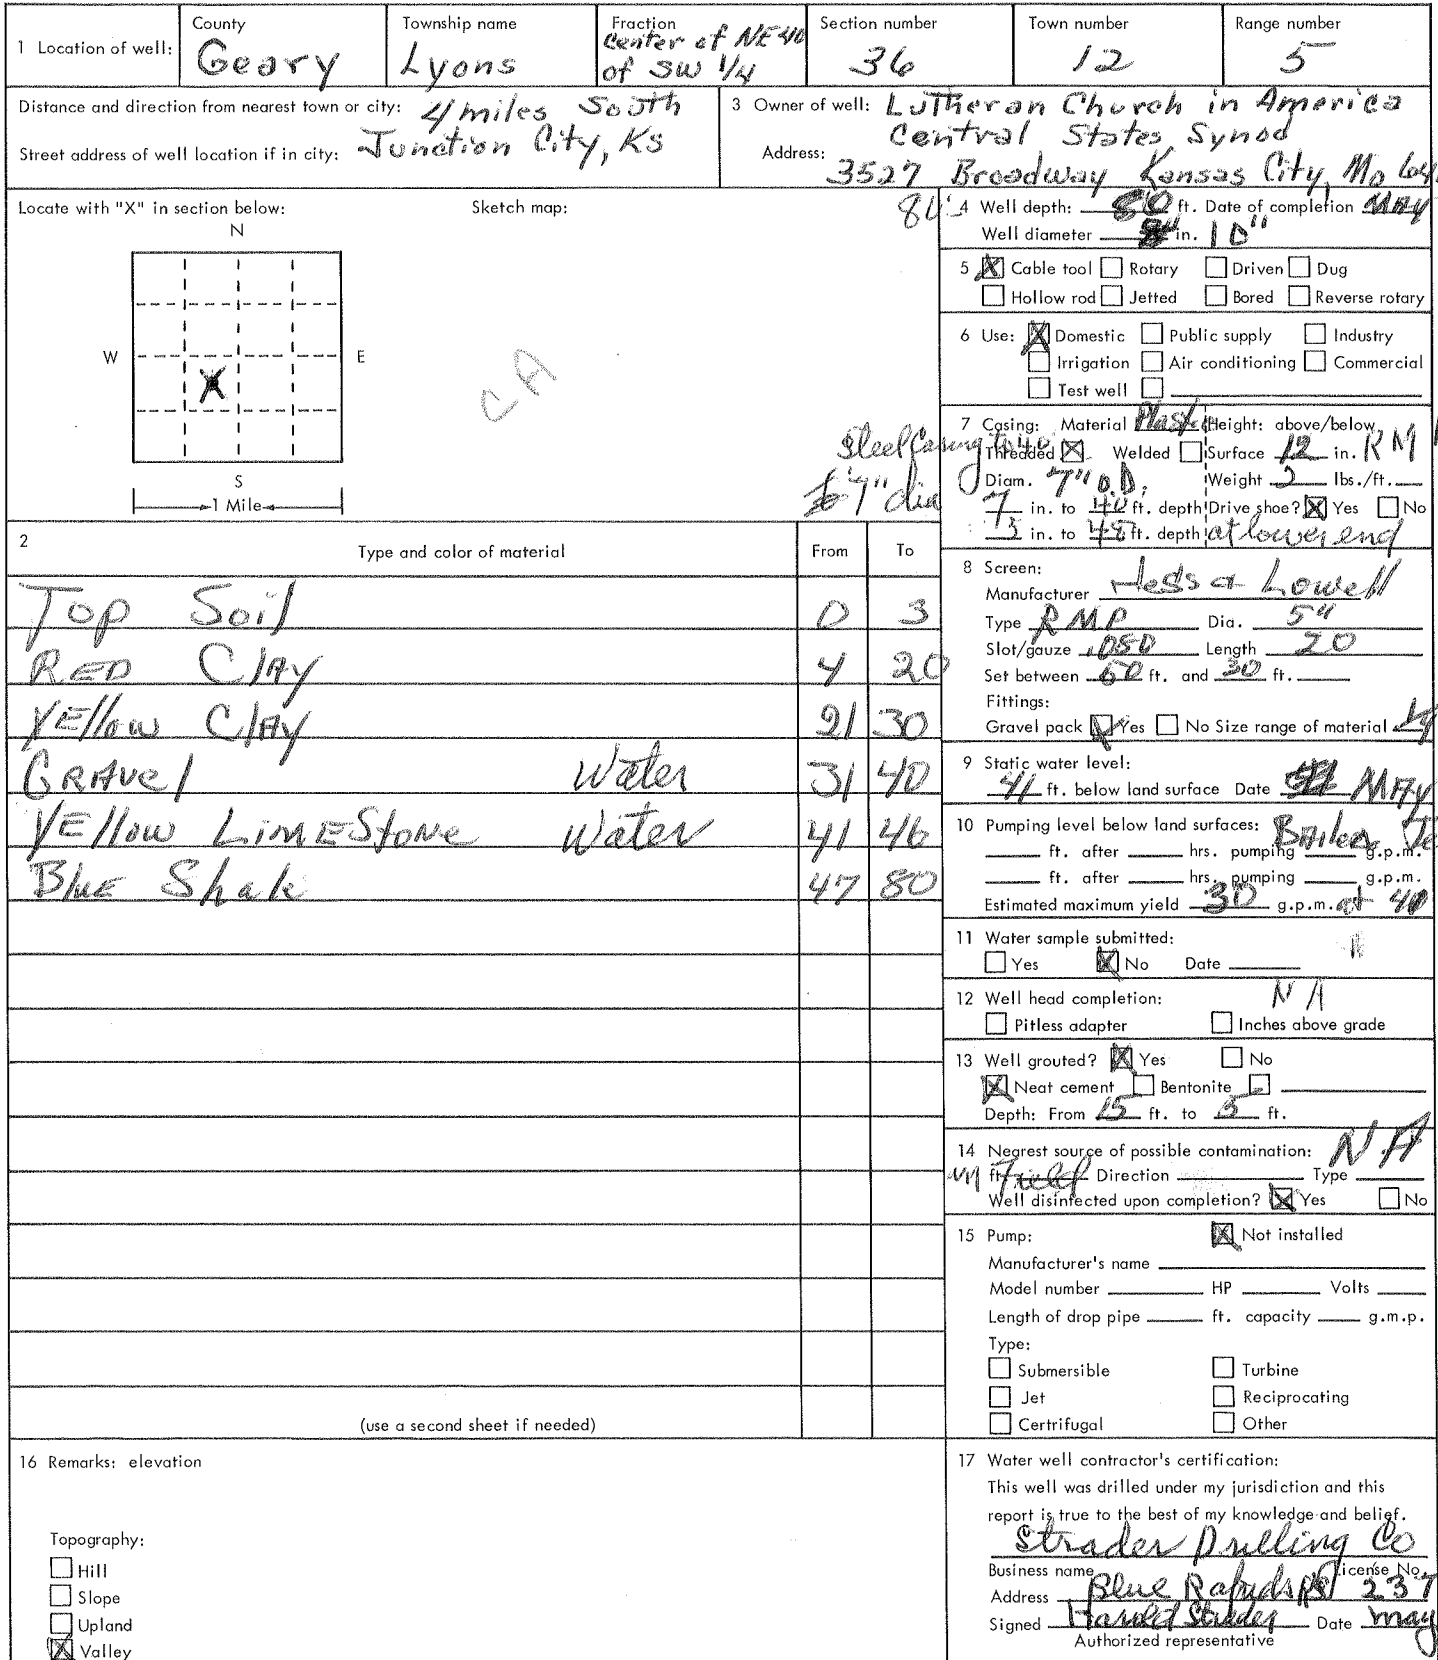 1 Location of well:
County
Geary
Township name
Lyons
Fraction
Center of NE 40
of SW 1/4
Section number
36
Town number
12
Range number
5
Distance and direction from nearest town or city: 4 miles South
Street address of well location if in city: Junction City, Ks
3 Owner of well: Lutheran Church in America
Central States Synod
Address: 3527 Broadway Kansas City, Mo
Locate with "X" in section below:
Sketch map:
N
W
E
S
1 Mile
CA
4 Well depth: 80 ft. Date of completion May
Well diameter in. 10"
5 X Cable tool Rotary Driven Dug
Hollow rod Jetted Bored Reverse rotary
6 Use: X Domestic Public supply Industry
Irrigation Air conditioning Commercial
Test well
Steel Casing to 40'
7" dia
7 Casing: Material Plastic Height: above/below
Threaded X Welded Surface 12 in. RM
Diam. 7" O.D. Weight 2 lbs./ft.
7 in. to 40 ft. depth Drive shoe? X Yes No
5 in. to 48 ft. depth at lower end
2
Type and color of material
From
To
Top Soil 0 3
RED Clay 4 20
Yellow Clay 21 30
Gravel Water 31 40
Yellow Limestone Water 41 46
Blue Shale 47 80
(use a second sheet if needed)
8 Screen:
Manufacturer Hess & Lowell
Type RMP Dia. 5"
Slot/gauze .050 Length 20
Set between 50 ft. and 30 ft.
Fittings:
Gravel pack X Yes No Size range of material
9 Static water level:
41 ft. below land surface Date May
10 Pumping level below land surfaces: Bailer Te
ft. after hrs. pumping g.p.m.
ft. after hrs. pumping g.p.m.
Estimated maximum yield 30 g.p.m. at 40
11 Water sample submitted:
Yes X No Date
12 Well head completion: NA
Pitless adapter Inches above grade
13 Well grouted? X Yes No
X Neat cement Bentonite
Depth: From 15 ft. to 5 ft.
14 Nearest source of possible contamination: NA
ft. Field Direction Type
Well disinfected upon completion? X Yes No
15 Pump: X Not installed
Manufacturer's name
Model number HP Volts
Length of drop pipe ft. capacity g.m.p.
Type:
Submersible Turbine
Jet Reciprocating
Certrifugal Other
16 Remarks: elevation
Topography:
Hill
Slope
Upland
X Valley
17 Water well contractor's certification:
This well was drilled under my jurisdiction and this
report is true to the best of my knowledge and belief.
Strader Drilling Co
Business name License No.
Address Blue Rapids KS 237
Signed Harold Strader Date May
Authorized representative